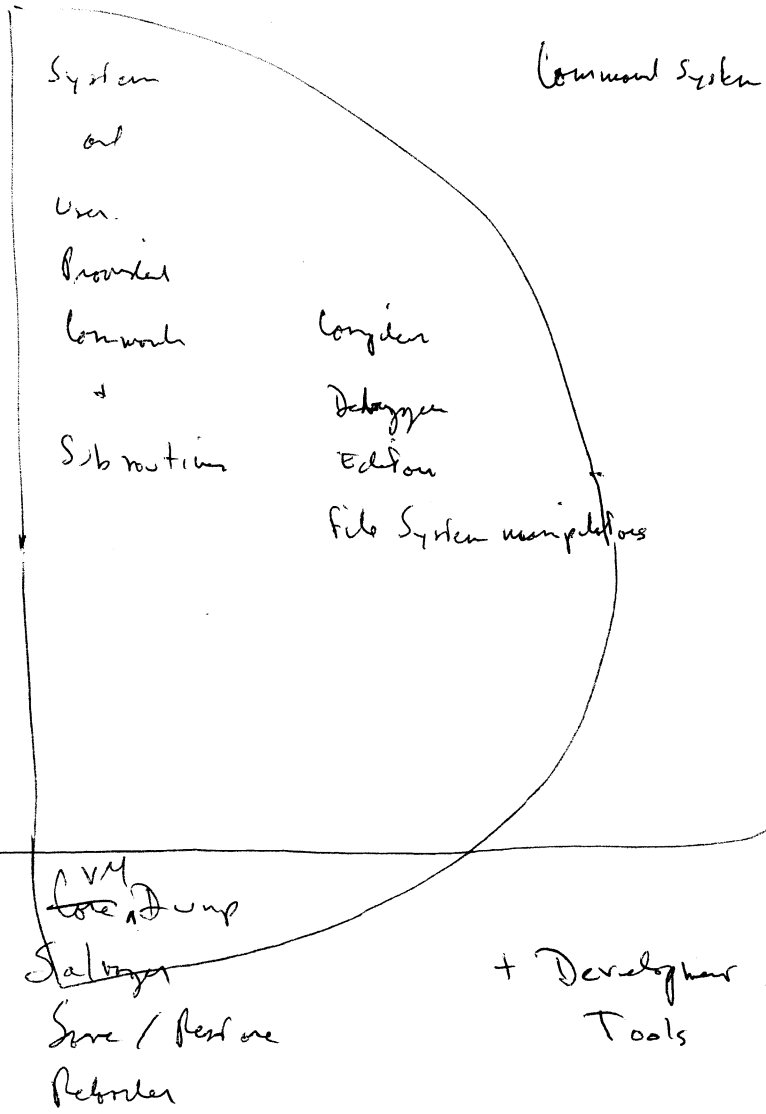 Command System
System
and
User
Provided
Commands
+
Subroutines
Compilers
Debuggers
Editors
File System manipulators
VM
Core Dump
Salvager
Save / Restore
Reloader
+ Development
Tools